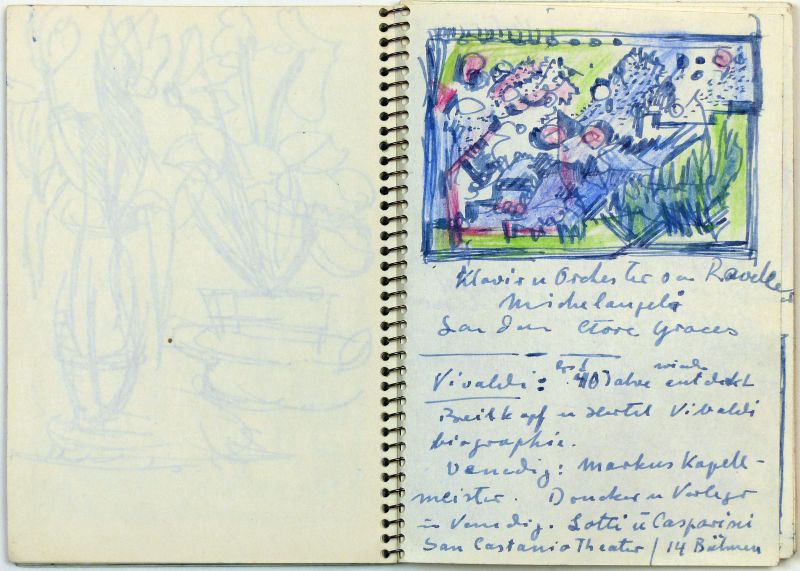 Klavier u Orchester von Ravel
Michelangeli
London Ctore Graces
Vivaldi: erst 40 Jahre wieder entdeckt
Breitkopf u Hertel Vivaldi
biographie.
Venedig: Markus Kapell-
meister. Drucker u Verleger
in Venedig. Lotti u Casparini
San Castanio Theater / 14 Bühnen